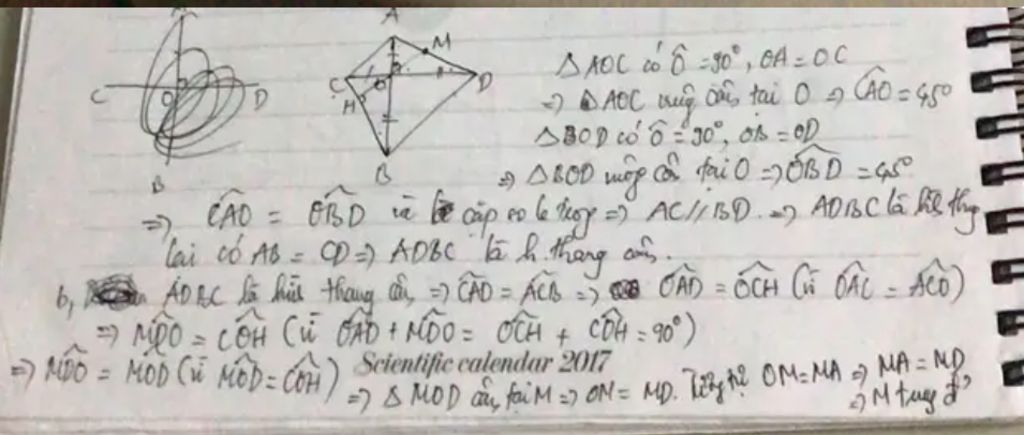 A
C
O
D
B
A
M
C
O
D
H
B
△AOC có Ô = 90°, OA = OC
=> △AOC vuông cân tại O => CÂO = 45°
△BOD có Ô = 90°, OB = OD
=> △BOD vuông cân tại O => OB̂D = 45°
=> CÂO = OB̂D và cặp so le trong => AC // BD. => ADBC là hình thang
lại có AB = CD => ADBC là h. thang cân.
b, ADBC là hình thang cân => CÂD = AĈB => OÂD = OĈH (vì OÂC = AĈO)
=> MD̂O = CÔH (vì OÂD + MD̂O = OĈH + CÔH = 90°)
=> MD̂O = MÔD (vì MÔD = CÔH)
Scientific calendar 2017
=> △MOD cân tại M => OM = MD. Tương tự OM = MA => MA = MD
=> M trung đ'